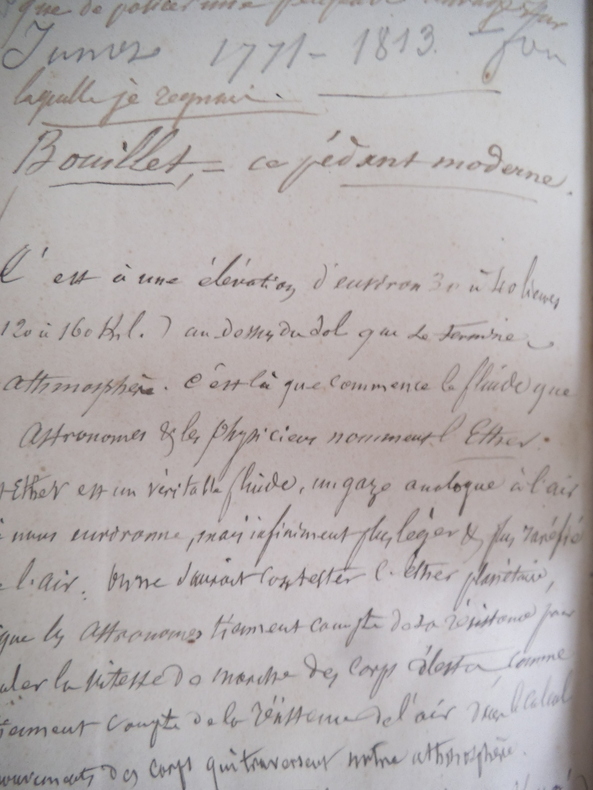 que de policer une
Junot 1771 - 1813.
laquelle je
Bouillet, = ce pédant moderne.
C'est à une élévation d'environ 30 à 40 lieues
120 à 160 Kil.) au dessus du sol que se termine
athmosphère. C'est là que commence le fluide que
Astronomes & les Physiciens nomment l'Ether.
Ether est un véritable fluide, un gaze analogue à l'air
nous environne, mais infiniment plus léger & plus raréfié
l'air. On ne saurait contester l'Ether planétaire,
que les Astronomes tiennent compte de sa résistance pour
uler la vitesse de marche des corps célestes, comme
tiennent compte de la résistance de l'air dans le calcul
mouvements des corps qui traversent notre athmosphère.